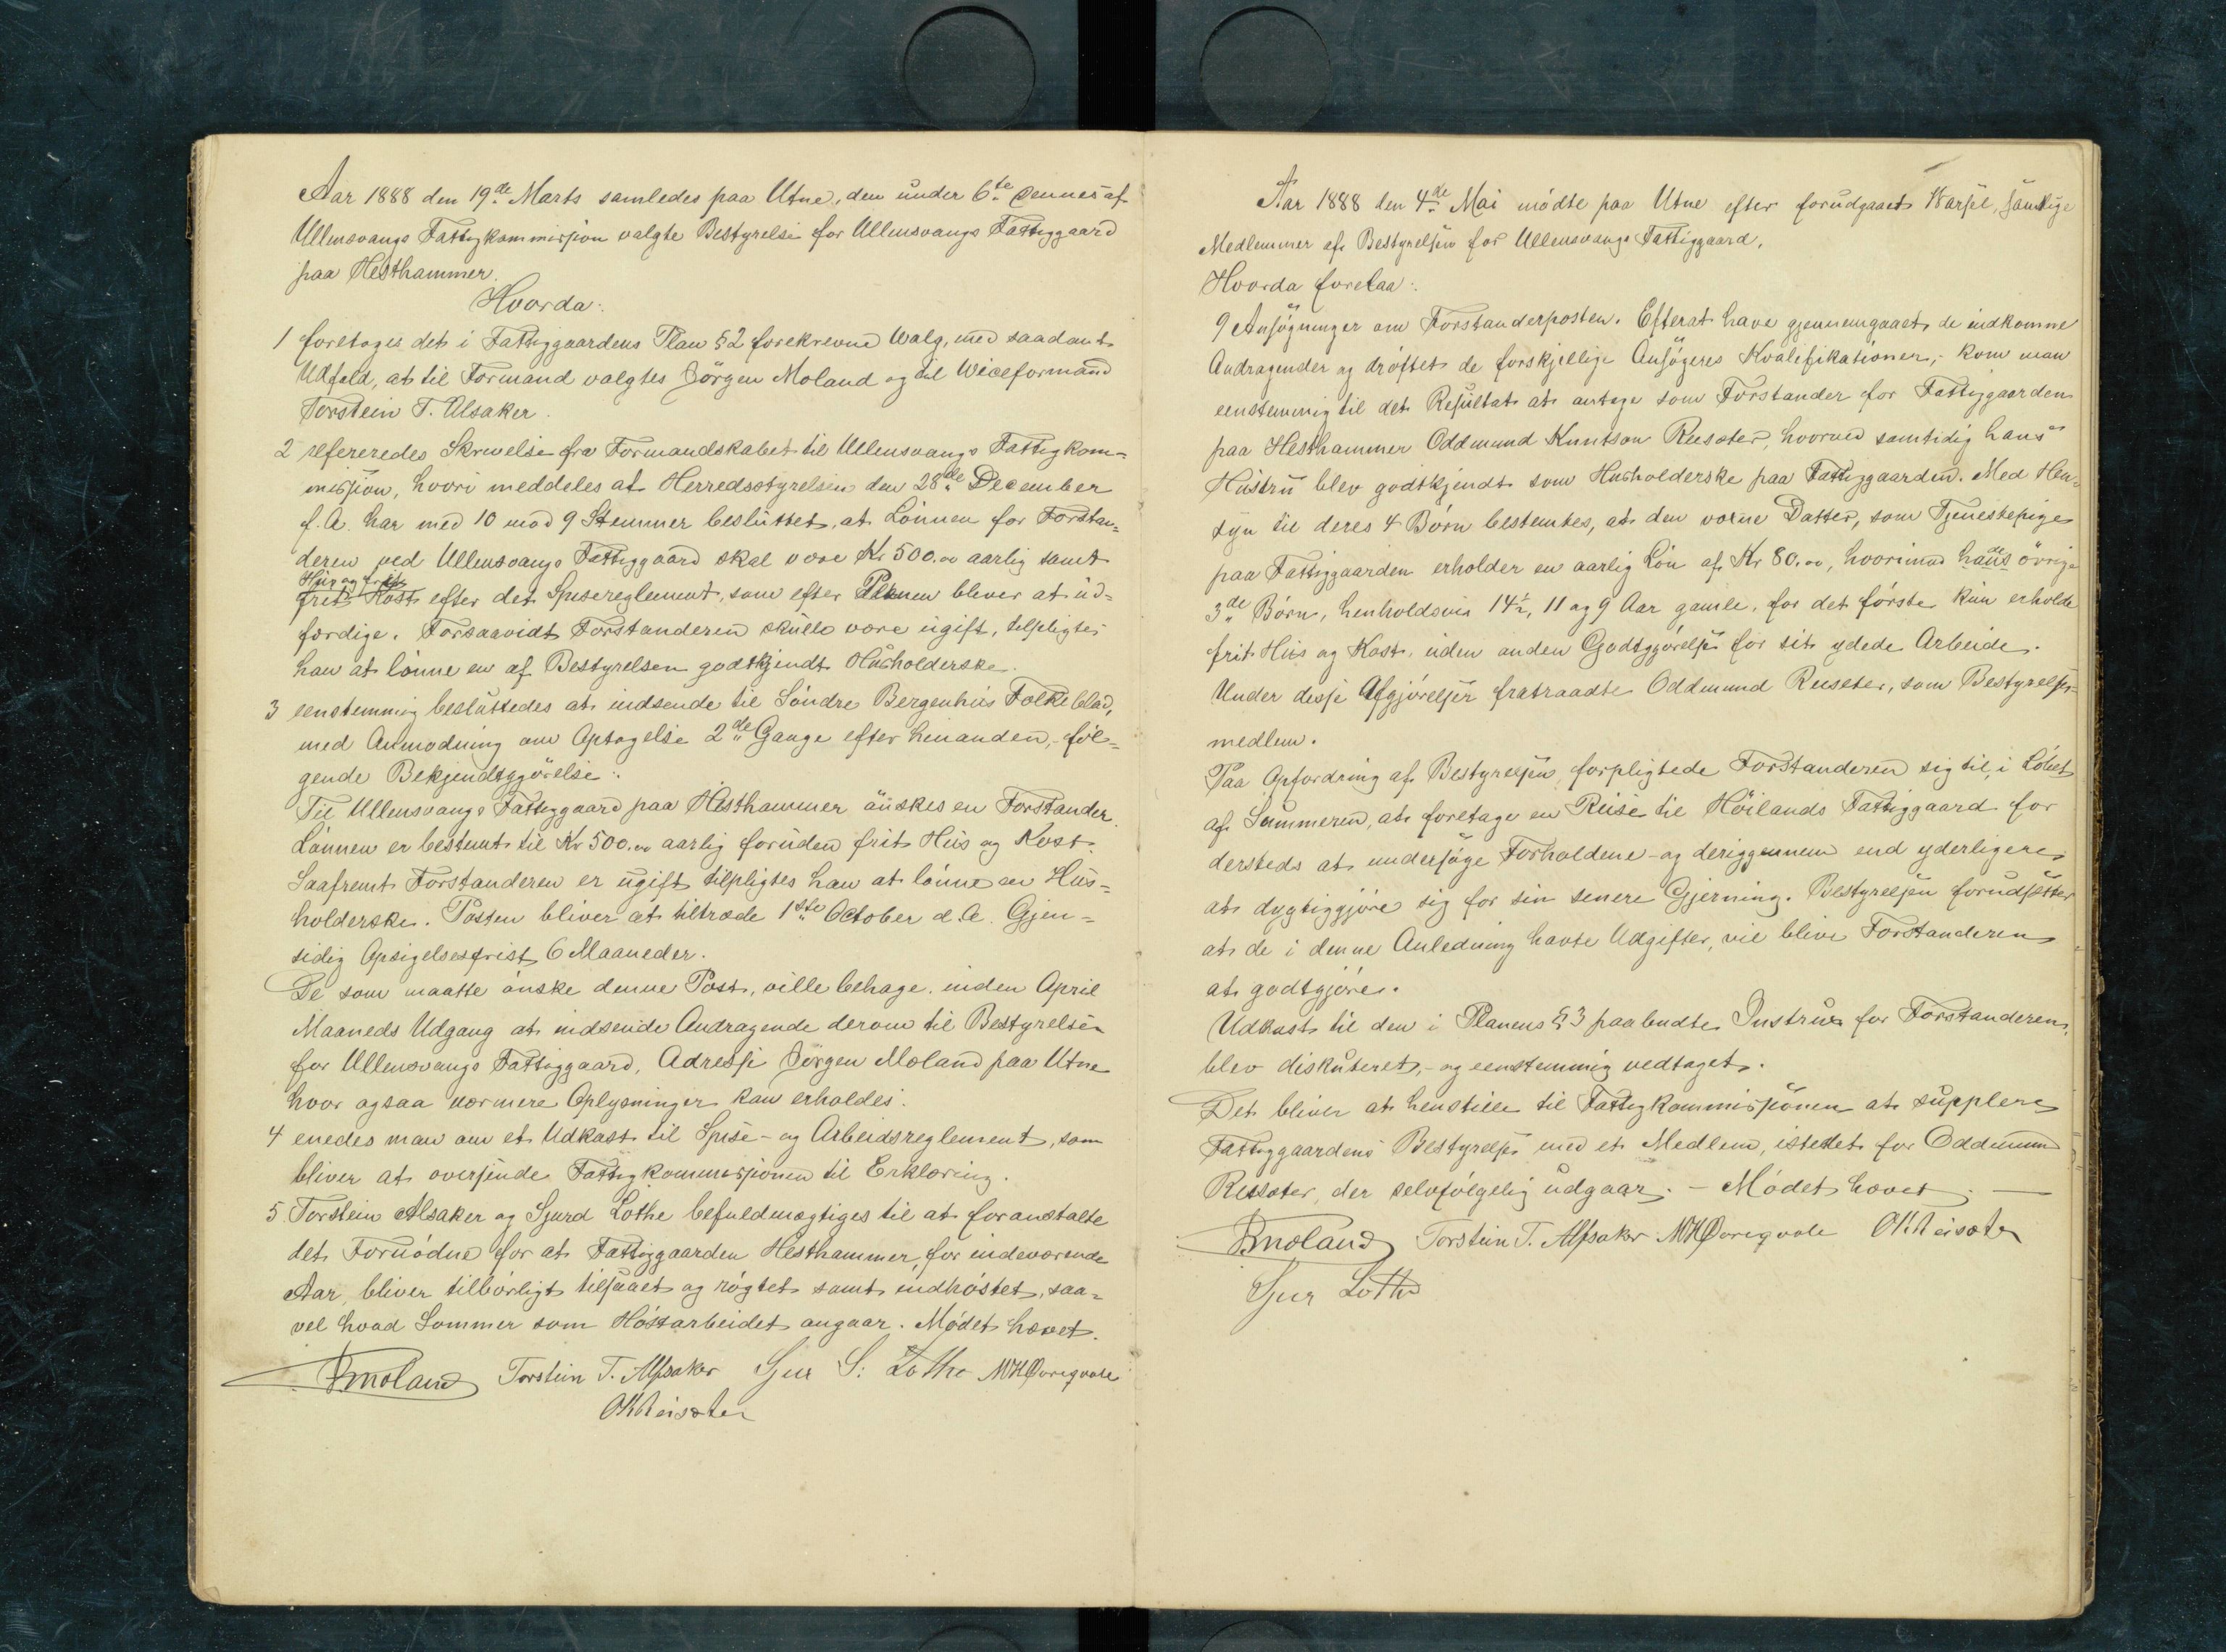 Aar 1888 den 19de Marts samledes paa Utne, den under 6te dennes af
Ullensvangs Fattigkommission valgte Bestyrelse for Ullensvangs Fattiggaard
paa Hesthammer.
Hvorda:
1 foretoges det i Fattiggaardens Plan § 2 forekrevne Valg, med saadant
Udfald, at til Formand valgtes Jörgen Moland og til Viceformand
Torstein T. Alsaker.
2 refereredes Skrivelse fra Formandskabet til Ullensvangs Fattigkom=
mission, hvori meddeles at Herredsstyrelsen den 28de December
f. A. har med 10 mod 9 Stemmer besluttet, at Lönnen for Forstan=
deren ved Ullensvangs Fattiggaard skal være Kr 500.00 aarlig samt
Hus og frit
frit Kost efter det Spisereglement, som efter Planen bliver at ud=
færdige. Forsaavidt Forstanderen skulle være ugift, tilpligtes
han at lönne en af Bestyrelsen godtkjendt Husholderske.
3 eenstemmig besluttedes at indsende til Söndre Bergenhus Folkeblad,
med Anmodning om Optagelse 2de Gange efter hinanden, föl=
gende Bekjendtgjörelse:
Til Ullensvangs Fattiggaard paa Hesthammer önskes en Forstander.
Lönnen er bestemt til Kr 500.00 aarlig foruden frit Hus og Kost.
Saafremt Forstanderen er ugift tilpligtes han at lönne en Hus=
holderske. Posten bliver at tiltræde 1ste October d. A. Gjen=
sidig Opsigelsesfrist 6 Maaneder.
De som maatte önske denne Post, ville behage inden April
Maaneds Udgang at indsende Andragende derom til Bestyrelsen
for Ullensvangs Fattiggaard, Adresse Jörgen Moland paa Utne
hvor ogsaa nærmere Oplysninger kan erholdes.
4 enedes man om et Udkast til Spise- og Arbeidsreglement, som
bliver at oversende Fattigkommissionen til Erklæring.
5 Torstein Alsaker og Sjurd Lothe befuldmægtiges til at foranstalte
det Fornödne for at Fattiggaarden Hesthammer, for indeværende
Aar, bliver tilbörligt tilsaaet og rögtet samt indhöstet, saa=
vel hvad Sommer som Höstarbeidet angaar. Mödet hævet.
JMoland Torstein T. Alsaker Sjur S. Lothe MHOpregvale
OKReisæter
Aar 1888 den 4de Mai mödte paa Utne efter forudgaaet Varsel, samtlige
Medlemmer af Bestyrelsen for Ullensvangs Fattiggaard.
Hvorda forelaa:
9 Ansögninger om Forstanderposten. Efterat have gjennemgaaet de indkomne
Andragender og dröftet de forskjellige Ansögeres Kvalifikationer, kom man
eenstemmig til det Resultat at antage som Forstander for Fattiggaarden
paa Hesthammer Oddmund Knutson Reisæter, hvorved samtidig hans
Hustru blev godtkjendt som Husholderske paa Fattiggaarden. Med Hen=
syn til deres 4 Börn bestemtes, at den vorne Datter, som Tjenestepige
paa Fattiggaarden erholder en aarlig Lön af Kr 80.00, hvorimod hans övrige
3de Börn, henholdsvis 14½, 11 og 9 Aar gamle, for det förste kun erholde
frit Hus og Kost, uden anden Godtgjörelse for sit ydede Arbeide.
Under disse Afgjörelser fratraadte Oddmund Reiseter, som Bestyrelses=
medlem.
Paa Opfordring af Bestyrelsen, forpligtede Forstanderen sig til, i Löbet
af Sommeren, at foretage en Reise til Höilands Fattiggaard for
dersteds at undersöge Forholdene - og derigjennem end yderligere
at dygtiggjöre sig for sin senere Gjerning. Bestyrelsen forudsætter
at de i denne Anledning havte Udgifter, vil blive Forstanderen
at godtgjöre.
Udkast til den i Planens § 3 paabudte Instrux for Forstanderen,
blev diskuteret, - og eenstemmig vedtaget.
Det bliver at henstille til Fattigkommissionen at supplere
Fattiggaardens Bestyrelse med et Medlem, istedet for Oddmund
Reisæter, der selvfölgelig udgaar. - Mödet hævet. -
JMoland Torstein T. Alsaker MHOpregvale OKReisæter
Sjur Lothe